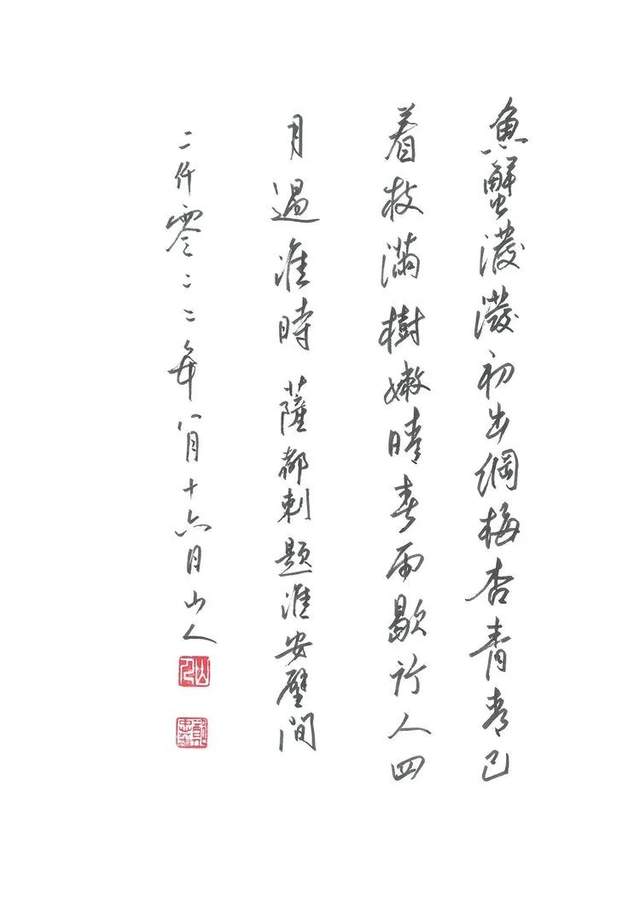 魚蟹潑潑初出網梅杏青青已
着枝滿樹嫩晴春雨歇行人四
月過淮時 薩都刺題淮安壁間
二仟零二二年八月十六日山人
山人